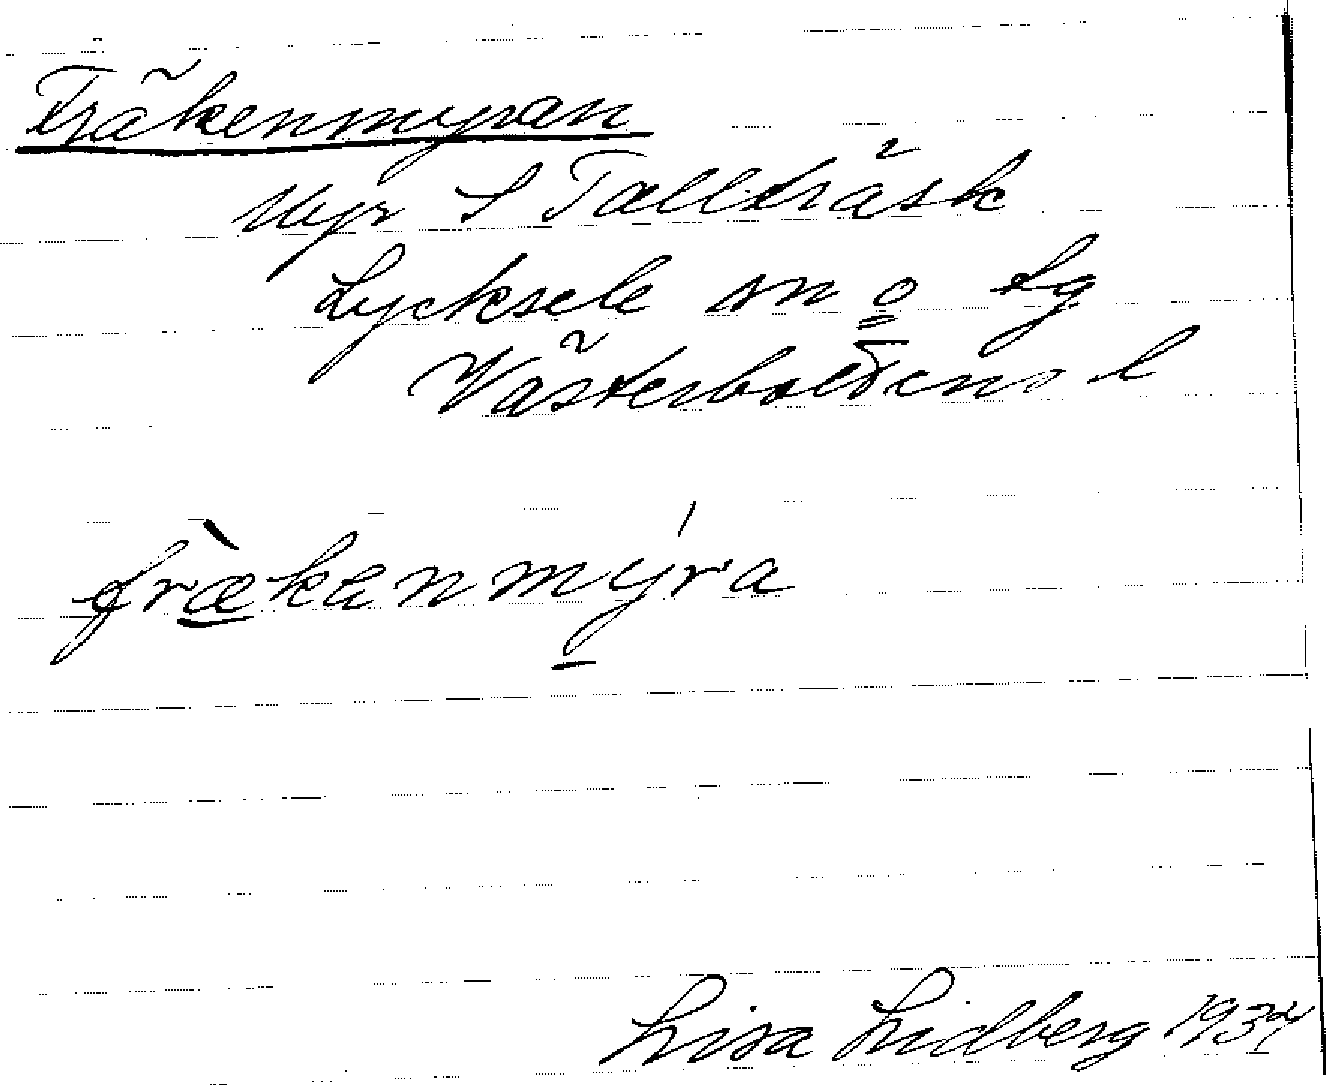 Fräkenmyran
Myr S Tallträsk
Lycksele sn o lg
Västerbottens l
frækanmýra
Lisa Lidberg 1934